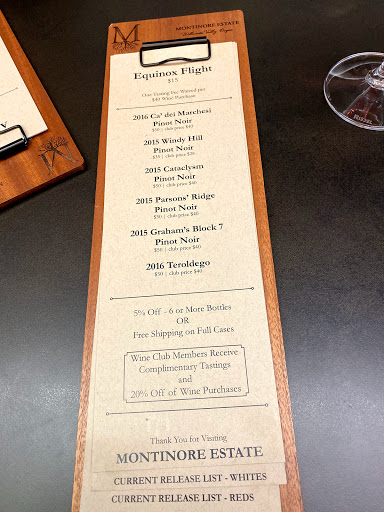 M
MONTINORE ESTATE
Willamette Valley, Oregon
Equinox Flight
$15
One Tasting Fee Waived per
$40 Wine Purchase
2016 Ca' dei Marchesi
Pinot Noir
$50 | club price $40
2015 Windy Hill
Pinot Noir
2015 Cataclysm
Pinot Noir
$50 | club price $40
2015 Parsons' Ridge
Pinot Noir
$50 | club price $40
2015 Graham's Block 7
Pinot Noir
$50 | club price $40
2016 Teroldego
$50 | club price $40
5% Off - 6 or More Bottles
OR
Free Shipping on Full Cases
Wine Club Members Receive
Complimentary Tastings
and
20% Off of Wine Purchases
Thank You for Visiting
MONTINORE ESTATE
CURRENT RELEASE LIST - WHITES
CURRENT RELEASE LIST - REDS